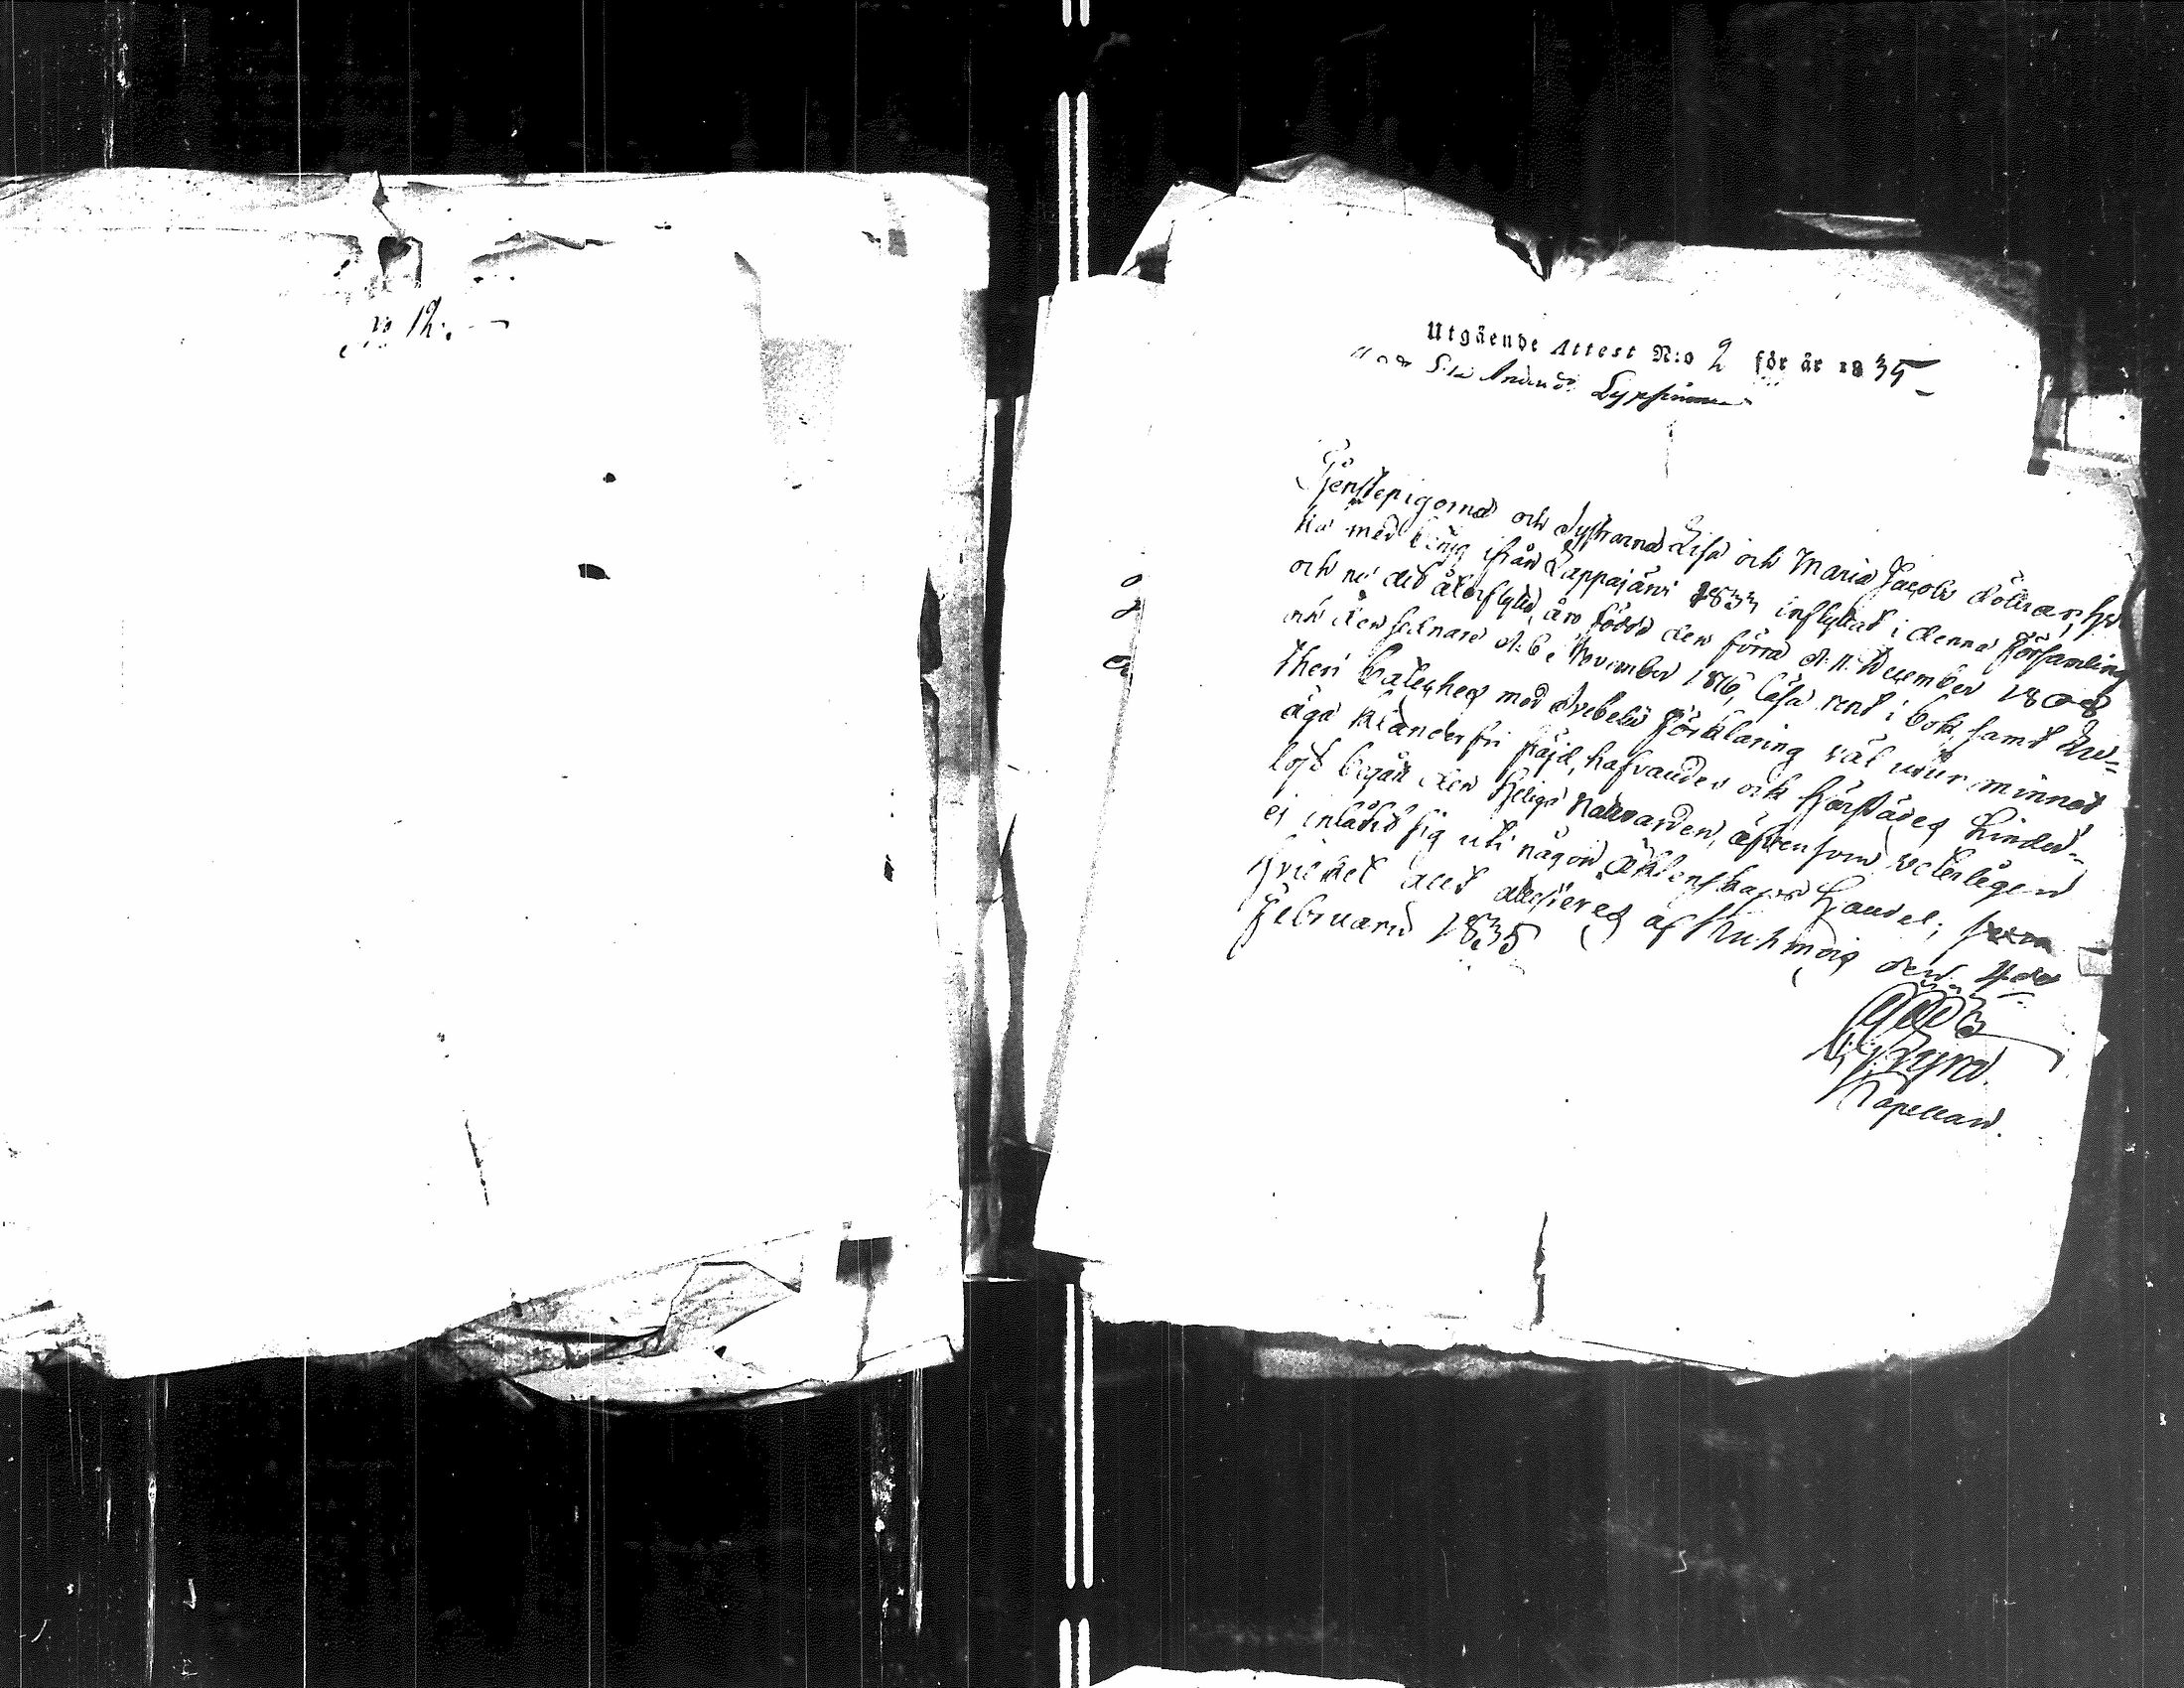 No 12.
Utgående Attest N:o 2 för år 1835
Tjenstepigorna och Systrarna Lisa och Maria Jacobs döttrar, hvil-
ka med betyg ifrån Lappajärvi 1833 inflyttat i denna Församling
och nu dit återflytta, äro födde den förra d. 11 December 1808
och den sednare d. 6 November 1816, läsa rent i bok, samt Lu-
theri Cateches med Svebelii Förklaring väl utur minnet
äga klanderfri fräjd, hafvandes ock härstädes hinder-
löst begått den Heliga Nattvarden, äfvensom veterligen
ej inlåtit sig uti någon Ächtenskaps Handel;
hvilket attesteras af Kuhmois den 4de
Februarii 1835
Kapellan.